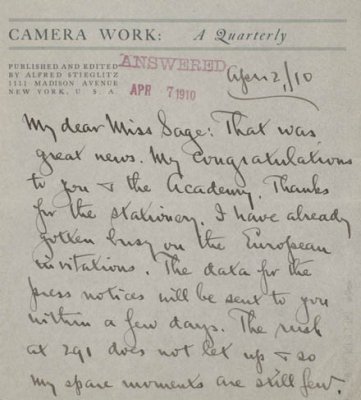 CAMERA WORK: A Quarterly
PUBLISHED AND EDITED
BY ALFRED STIEGLITZ
1111 MADISON AVENUE
NEW YORK, U. S. A.
ANSWERED
APR 7 1910
April 2, /10
My dear Miss Sage: That was
great news. My Congratulations
to you & the Academy. Thanks
for the stationery. I have already
gotten busy on the European
invitations. The data for the
press notices will be sent to you
within a few days. The rush
at 291 does not let up & so
my spare moments are still few.